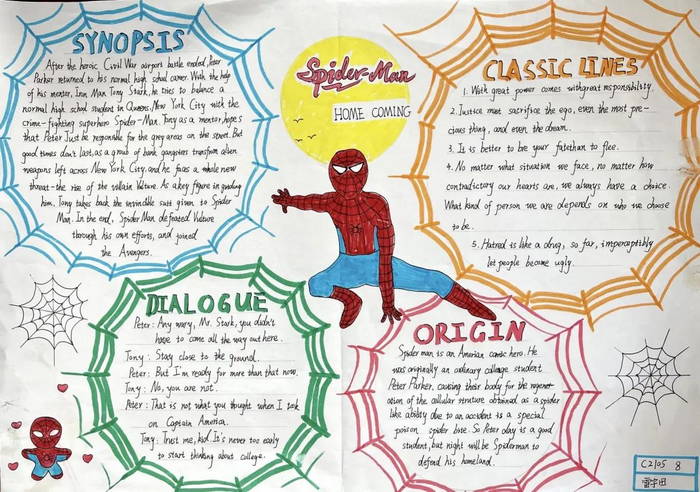 SYNOPSIS
After the heroic Civil War airport battle ended, Peter
Parker returned to his normal high school career. With the help
of his mentor, Iron Man Tony Stark, he tries to balance a
normal high school student in Queens, New York City with the
crime-fighting superhero Spider-Man. Tony as a mentor, hopes
that Peter Just be responsible for the grey areas on the street. But
good times don't last, as a group of bank gangsters transform alien
weapons left across New York City, and he faces a whole new
threat - the rise of the villain Vulture. As a key figure in guiding
him, Tony takes back the invincible suit given to Spider
Man. In the end, Spider Man defeated Vulture
through his own efforts, and joined
the Avengers.
Spider-Man
HOME COMING
CLASSIC LINES
1. With great power comes with great responsibility.
2. Justice must sacrifice the ego, even the most pre-
cious thing, and even the dream.
3. It is better to be your fate than to flee.
4. No matter what situation we face, no matter how
contradictory our hearts are, we always have a choice.
What kind of person we are depends on who we choose
to be.
5. Hatred is like a drug, so far, imperceptibly
let people become ugly.
DIALOGUE
Peter: Any way, Mr. Stark, you didn't
have to come all the way out here.
Tony: Stay close to the ground.
Peter: But I'm ready for more than that now.
Tony: No, you are not.
Peter: That is not what you thought when I took
on Captain America.
Tony: Trust me, kid. It's never too early
to start thinking about college.
ORIGIN
Spider man is an American comic hero. He
was originally an ordinary college student
Peter Parker, causing their body for the regener
ation of the cellular struture obtained as a spider
like ability due to an accident is a special
poison spider bite. So Peter day is a good
student, but night will be Spiderman to
defend his homeland.
C2105 8